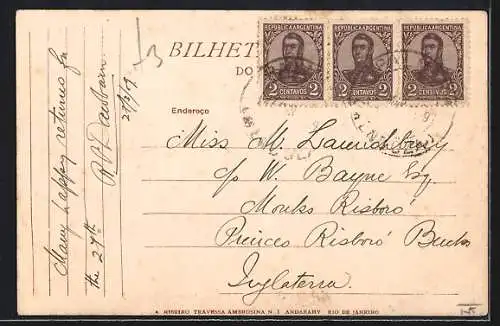 BILHET
DO
REPUBLICA ARGENTINA
2 CENTAVOS 2
REPUBLICA ARGENTINA
2 CENTAVOS 2
REPUBLICA ARGENTINA
2 CENTAVOS 2
Endereço
Miss M.
c/o W. Bayne Esq
Monks Risboro'
Princes Risboro' Bucks
Inglaterra.
Many happy returns for
the 29th
A. RIBEIRO TRAVESSA AMBROSINA N. 1 ANDARAHY RIO DE JANEIRO